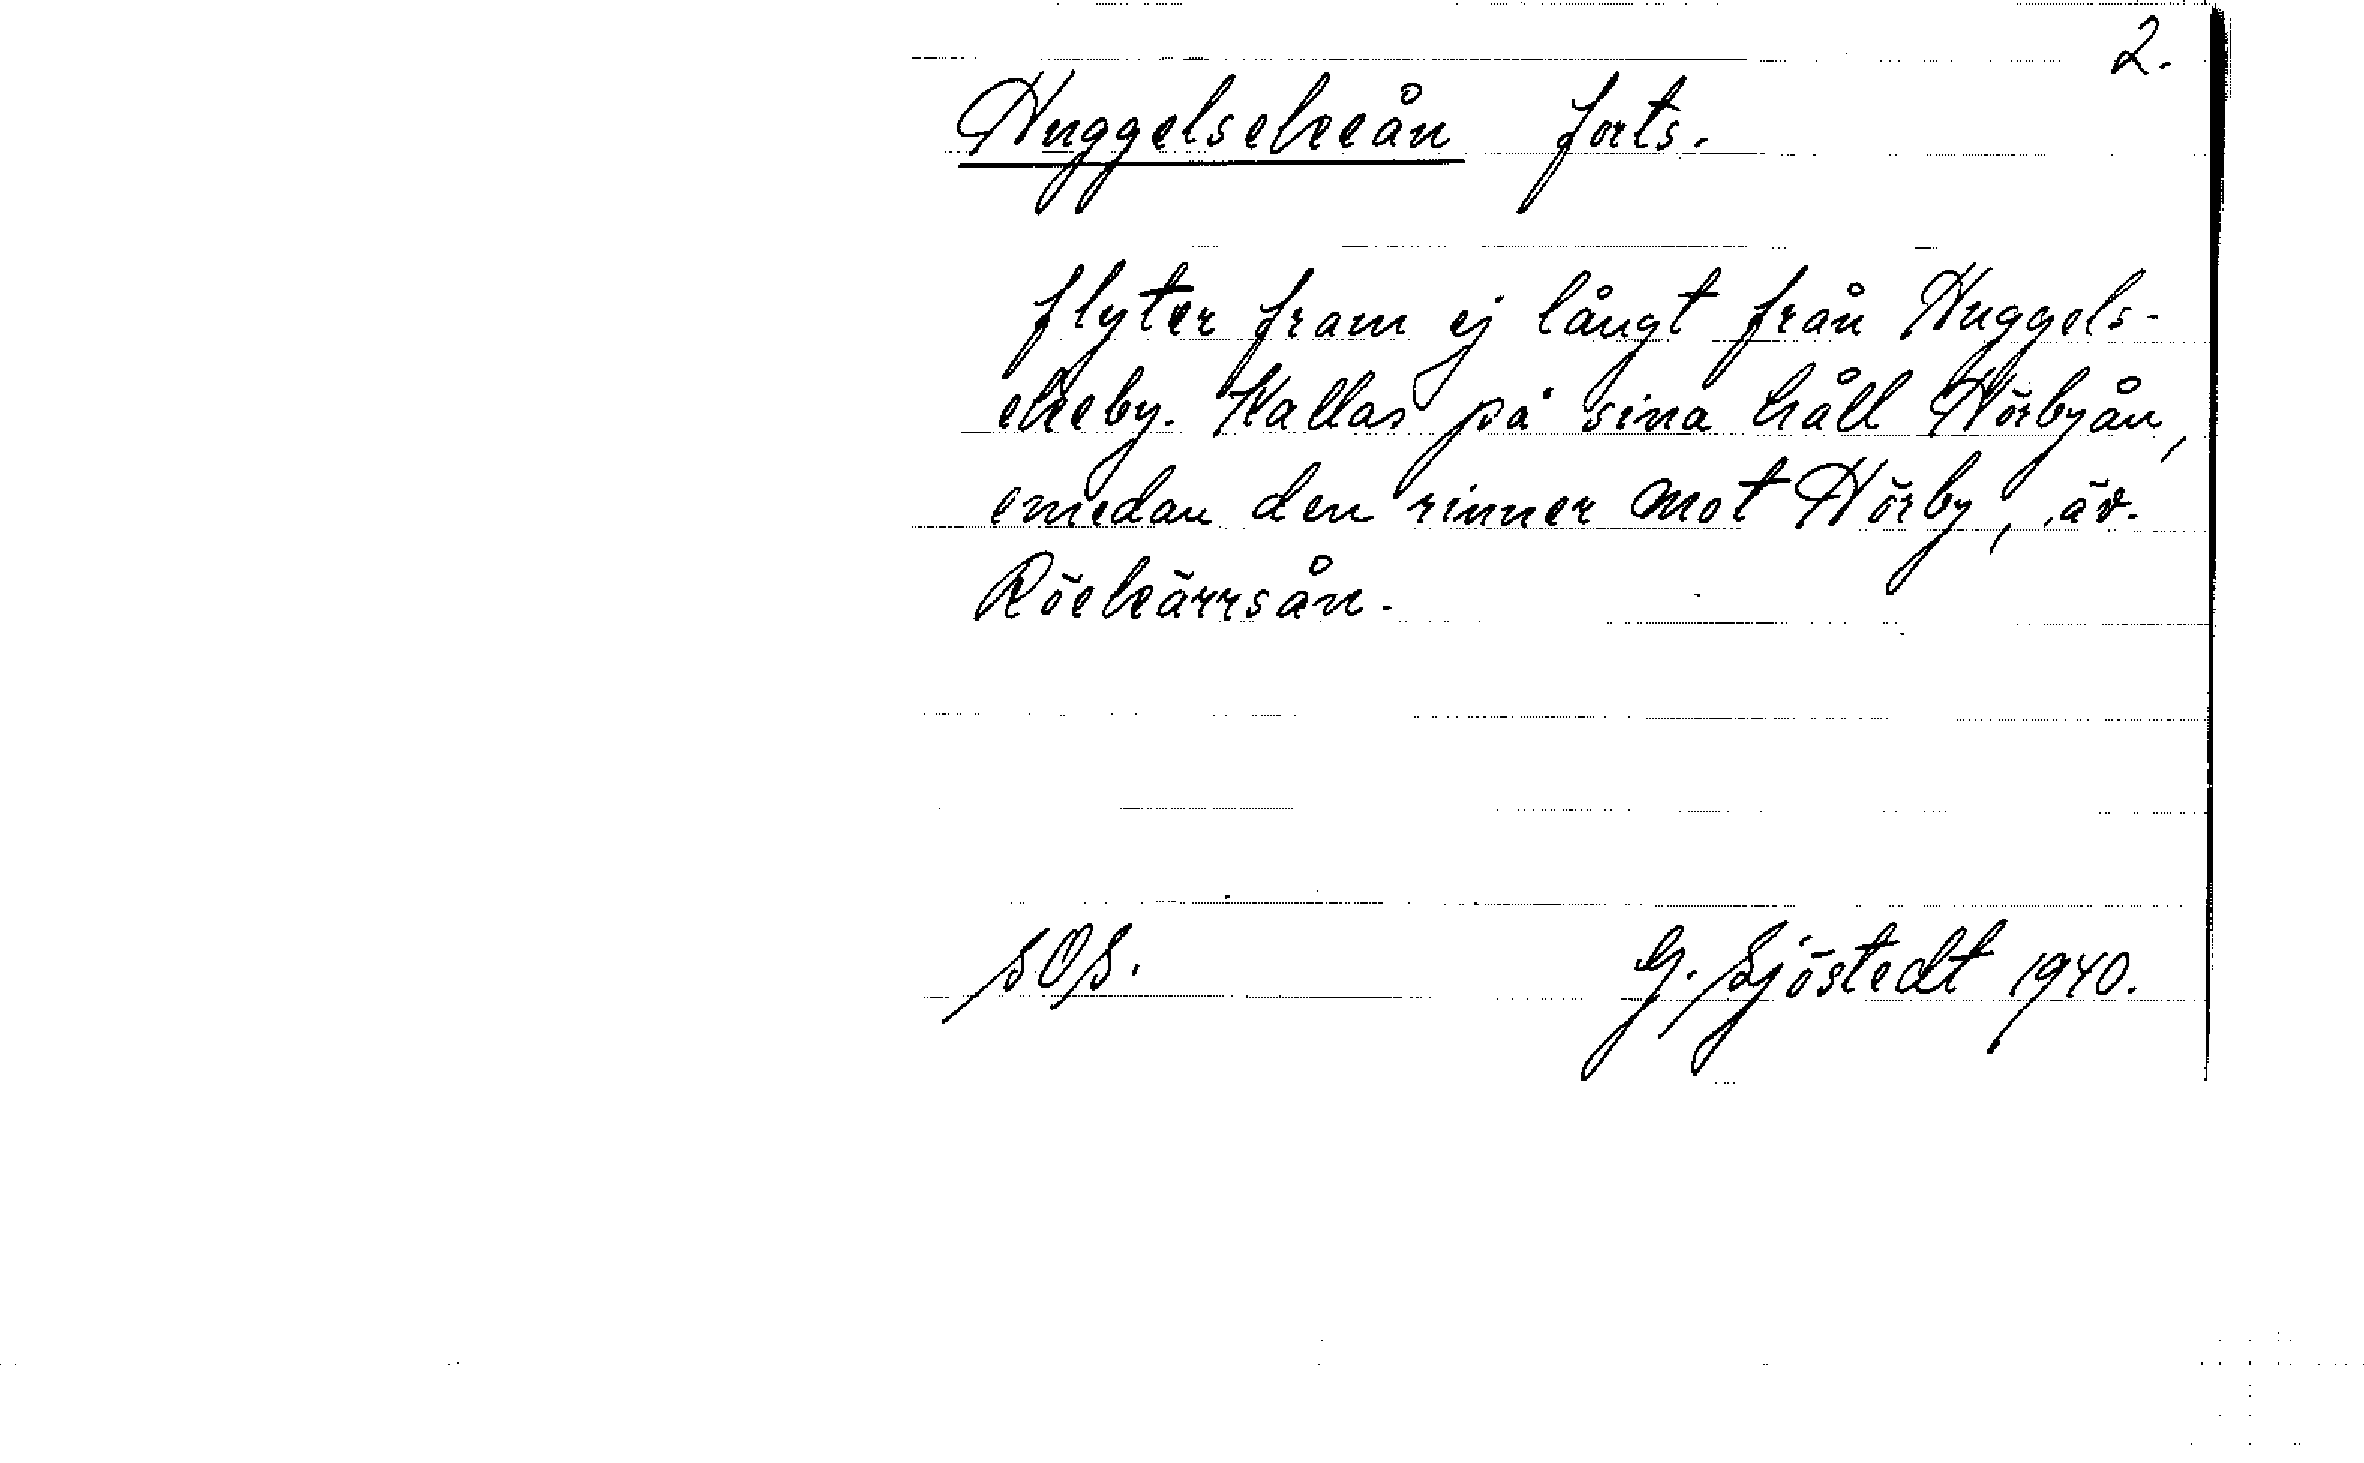 2.
Huggelsekeån forts.
flyter fram ej långt från Huggels-
ekeby. Kallas på sina håll Hörbyån,
emedan den rinner mot Hörby, äv.
Röekärrsån.
SOS. G. Sjöstedt 1940.